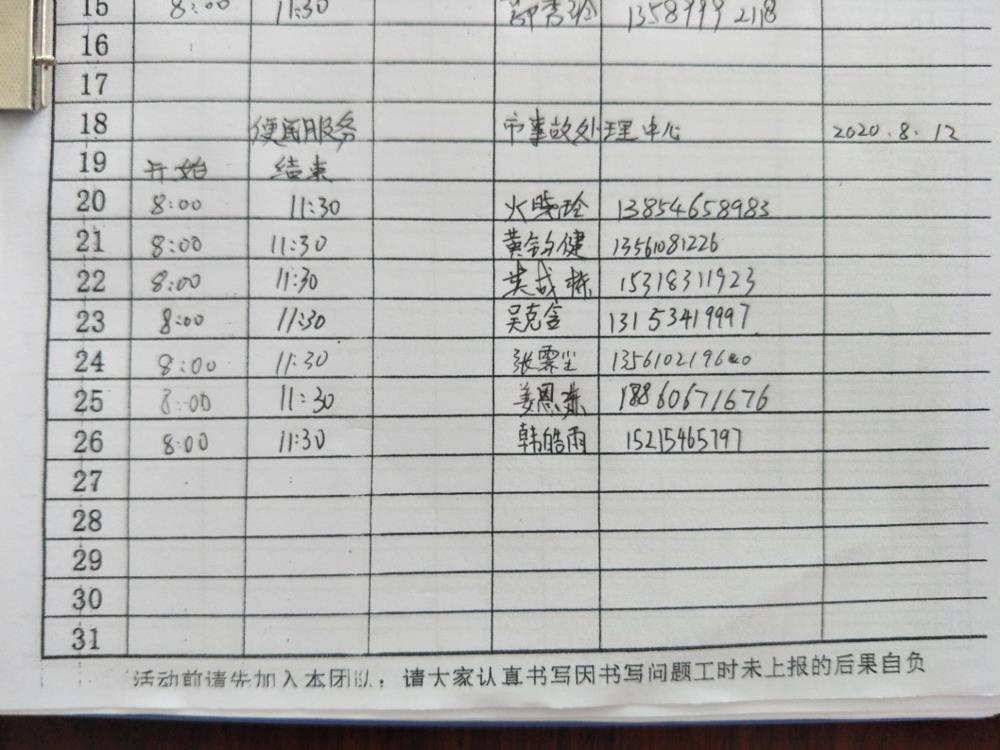 15 8:00 11:30 1358999 2118
16
17
18 便民服务 市事故处理中心 2020.8.12
19 开始 结束
20 8:00 11:30 火晓玲 13854658983
21 8:00 11:30 黄钧健 13561081226
22 8:00 11:30 栋 15318311923
23 8:00 11:30 吴克含 13153419997
24 8:00 11:30 张霖尘
25 8:00 11:30 姜恩东 18860671676
26 8:00 11:30 韩皓雨 15215465797
27
28
29
30
31
活动前请先加入本团队，请大家认真书写因书写问题工时未上报的后果自负